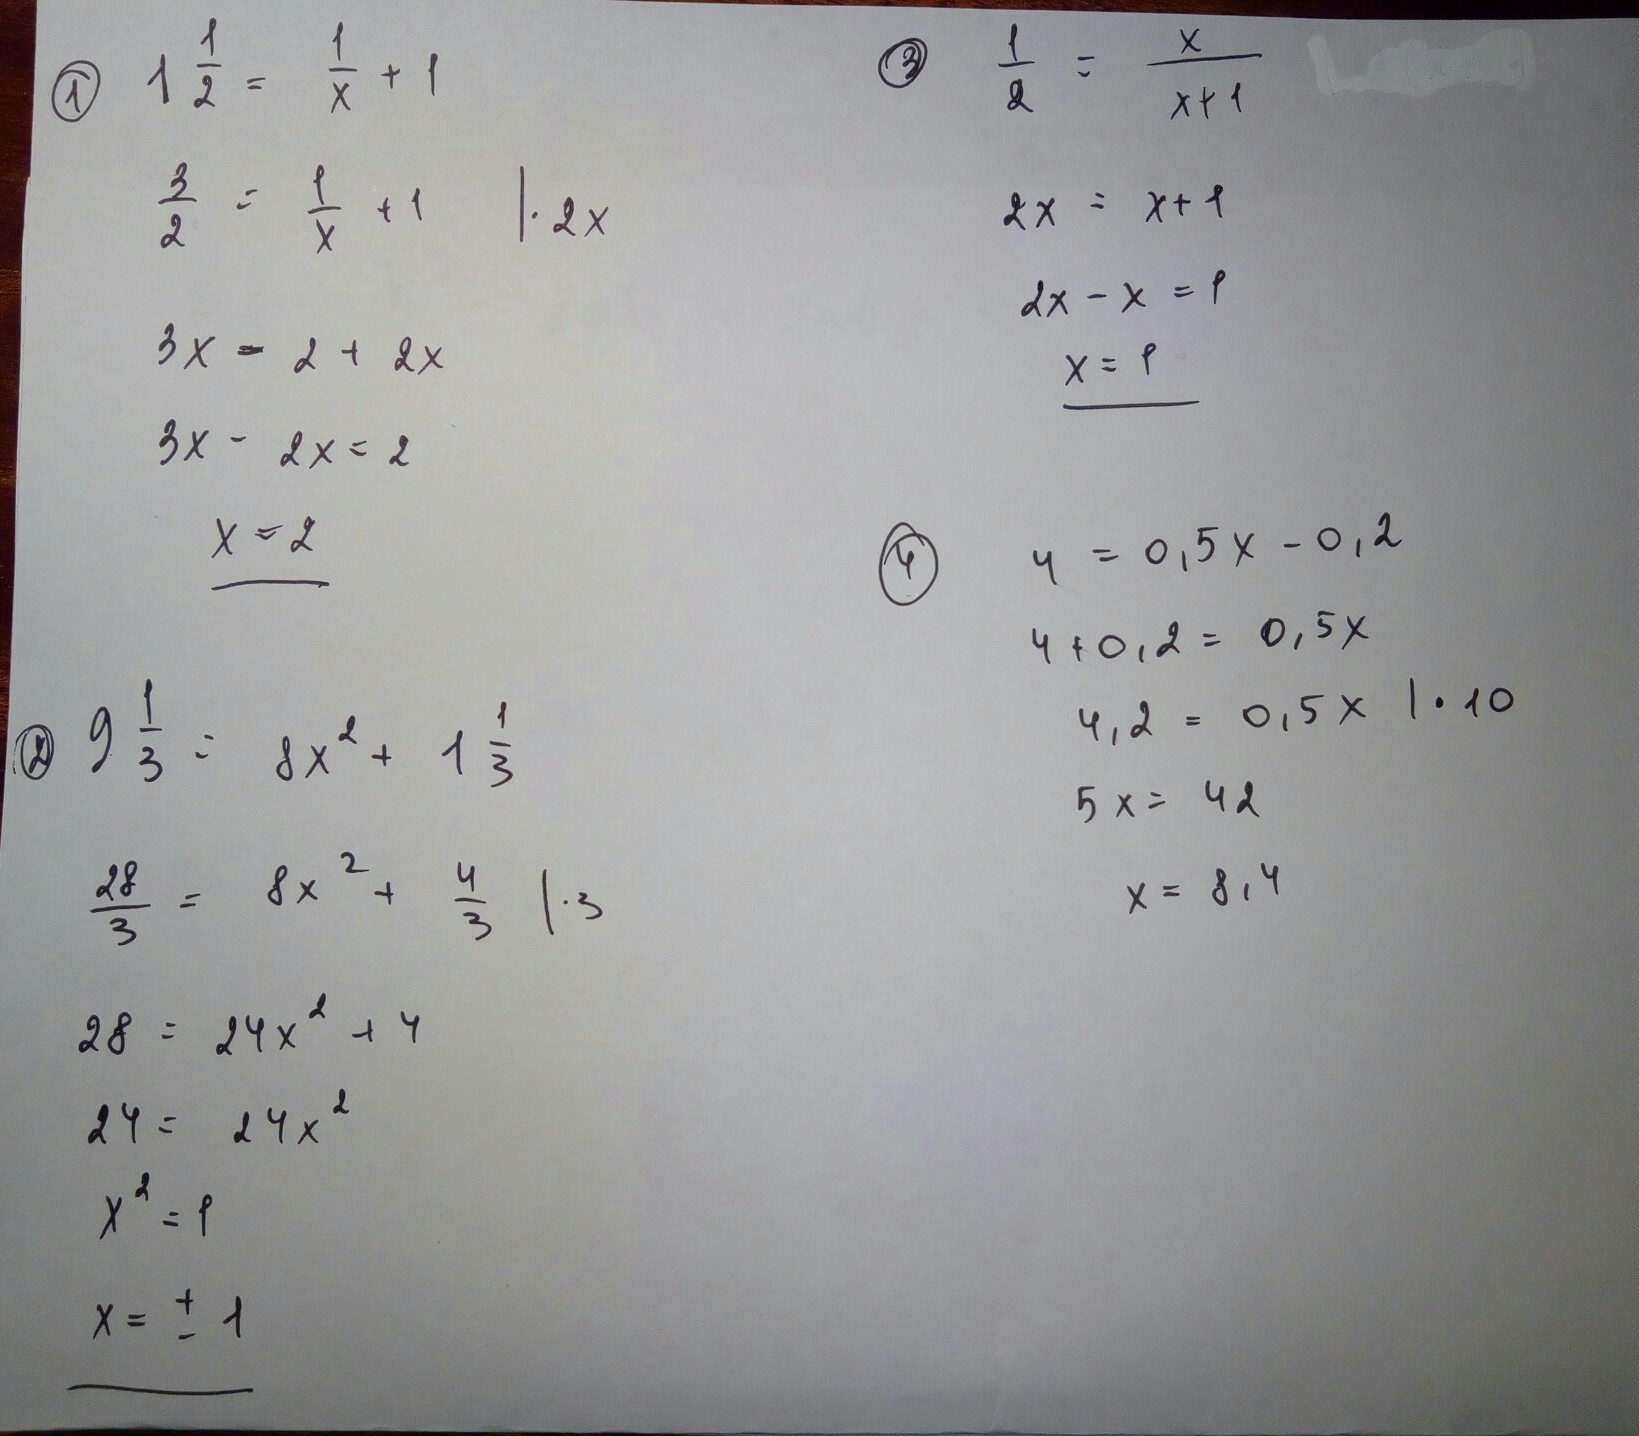 ① 1 1/2 = 1/x + 1
3/2 = 1/x + 1 | · 2x
3x = 2 + 2x
3x - 2x = 2
x = 2
② 9 1/3 = 8x² + 1 1/3
28/3 = 8x² + 4/3 | · 3
28 = 24x² + 4
24 = 24x²
x² = 1
x = ± 1
③ 1/2 = x/(x+1)
2x = x+1
2x - x = 1
x = 1
④ 4 = 0,5x - 0,2
4 + 0,2 = 0,5x
4,2 = 0,5x | · 10
5x = 42
x = 8,4